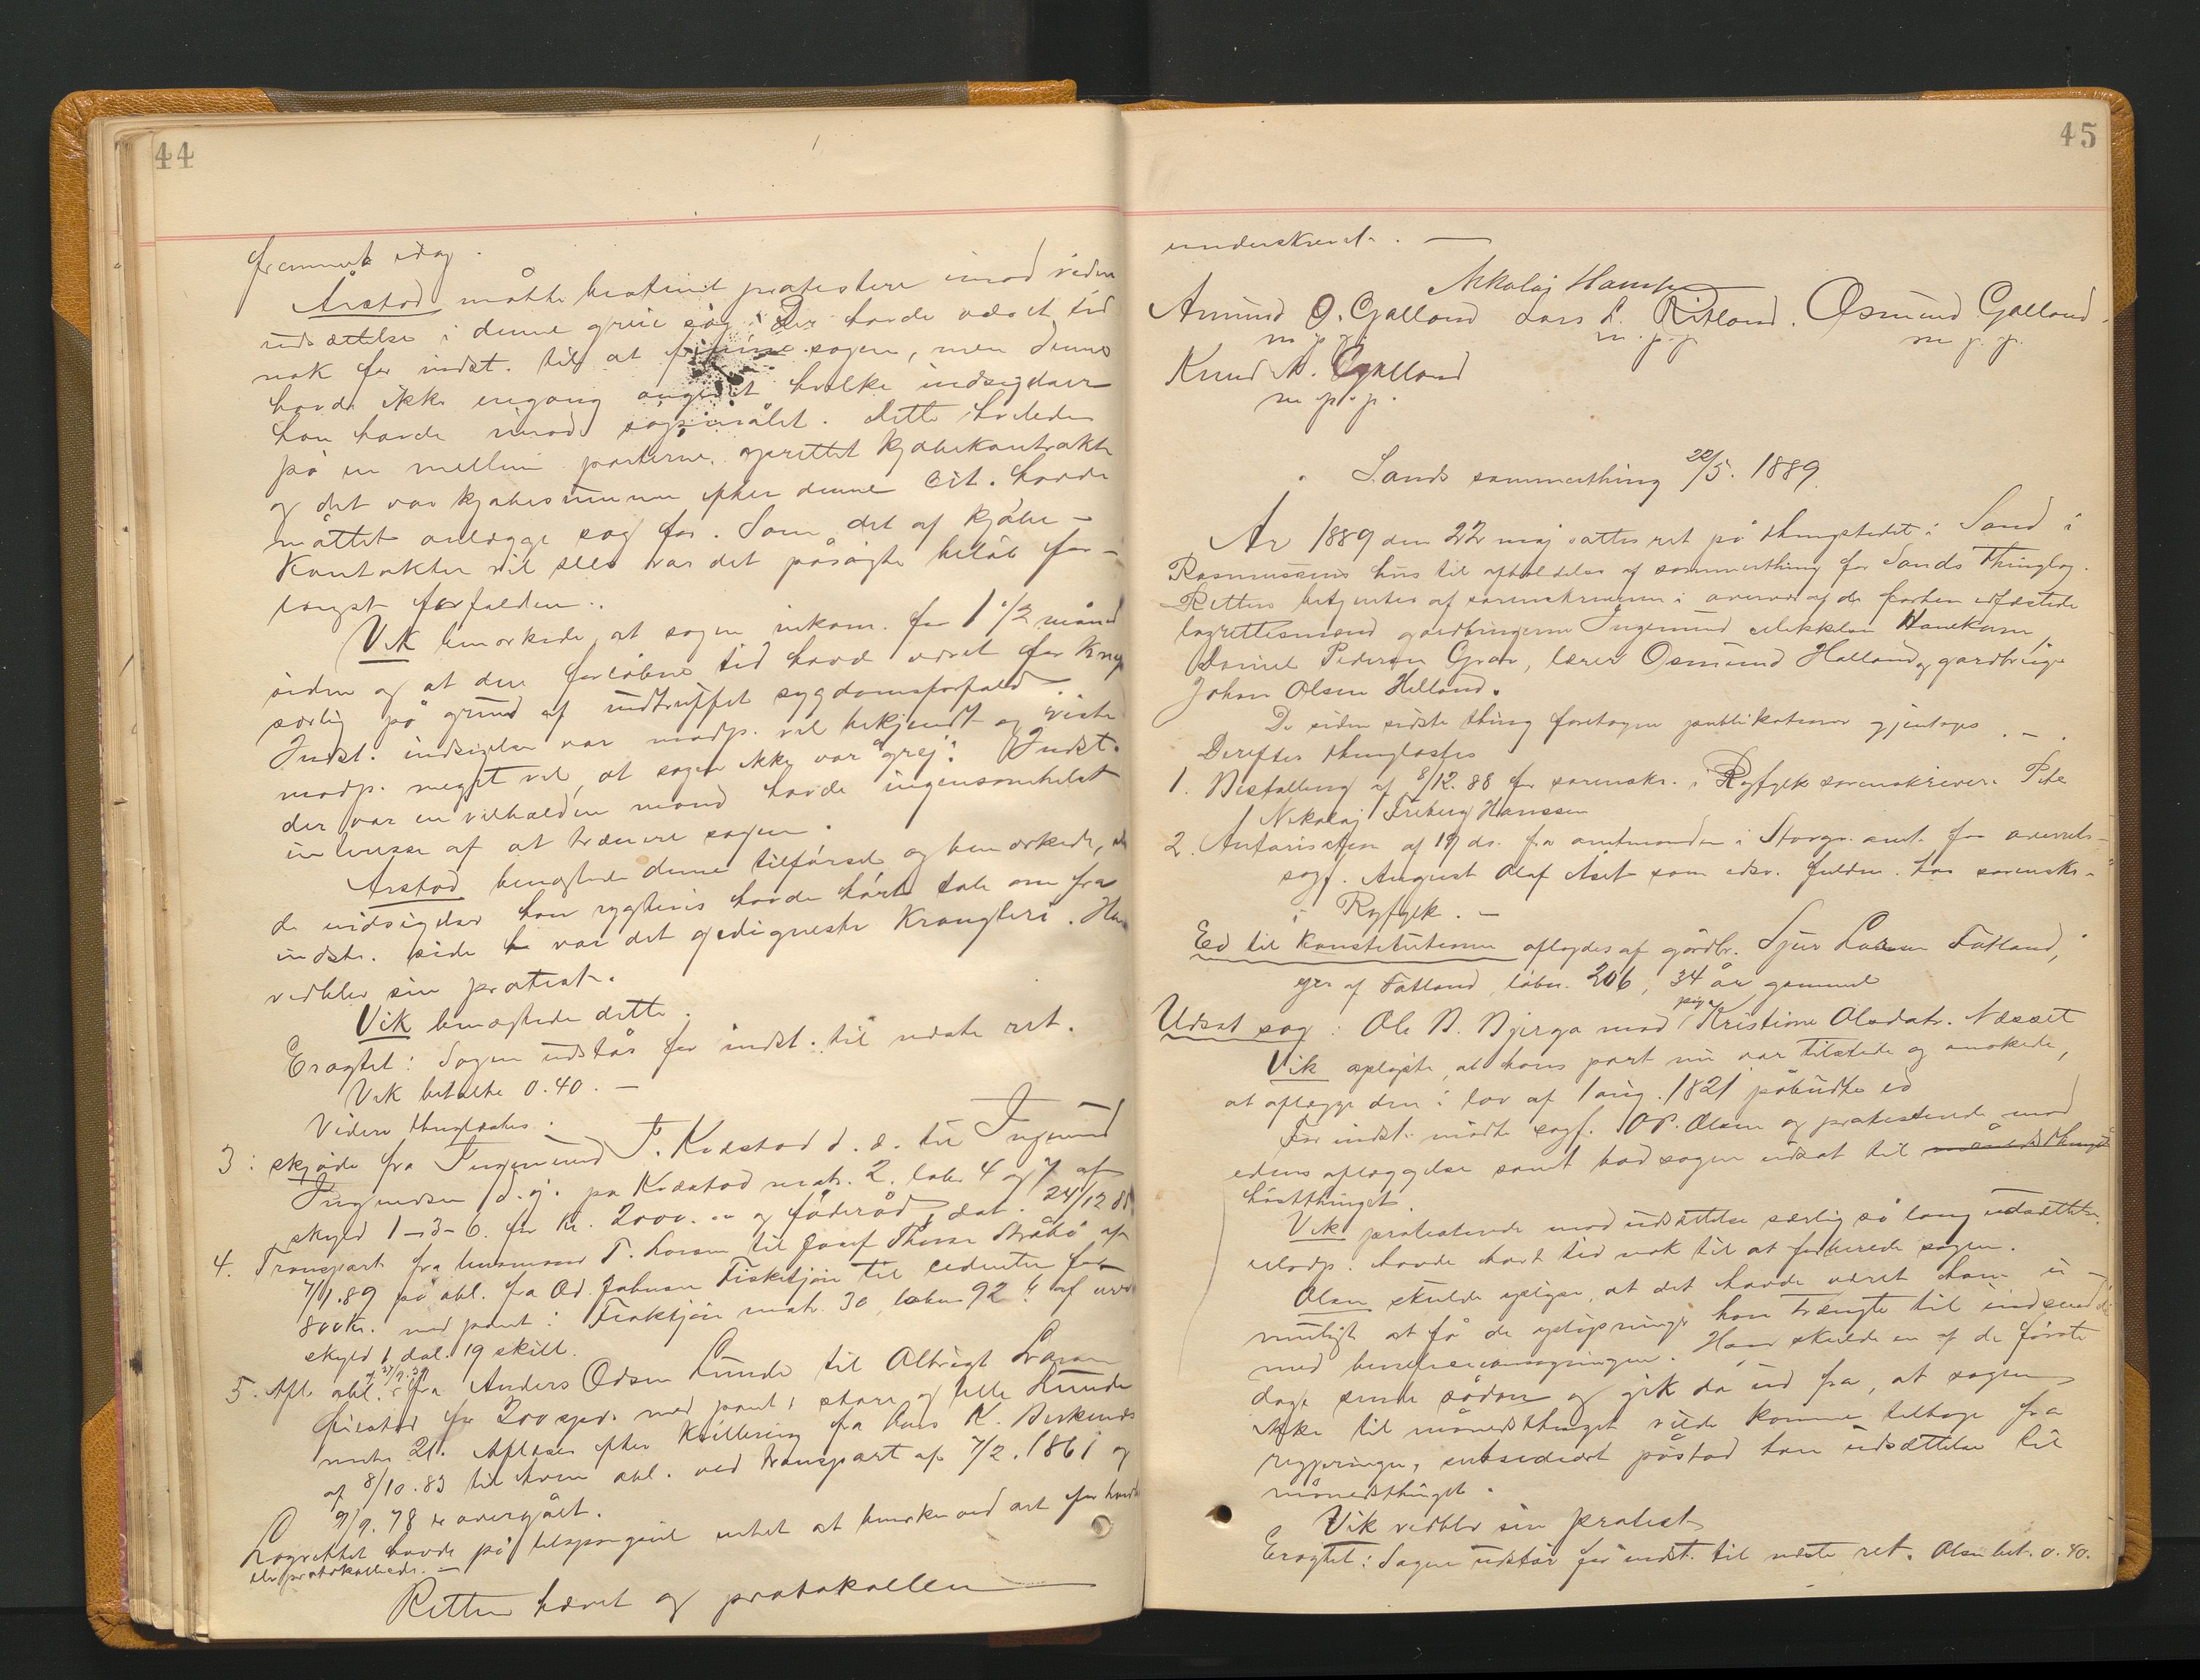 44
fremmet idag.
Årstod måtte bestemt protestere imod videre
udsættelse i denne greie sag. Der havde været tid
nok for indst. til at sagen, men denne
havde ikke engang angivet hvilke indsigelser
han havde imod søgsmålet. Dette hviledes
på en mellem parterne oprettet kjøbekontrakt
og det var kjøbesummen efter denne cit. havde
måttet anlægge sag for. Som det af kjøbe-
kontrakten vil sees var det påsøgte beløb for-
længst forfalden.
Vik bemærkede, at sagen indkom. for 1 1/2 måned
siden og at den forløbne tid havde været for knap
særlig på grund af indtruffet sygdomsforfald.
Indst. indsigelse var modp. vel bekjendt og vidste
modp. meget vel, at sagen ikke var "grej". Indst.
der var en velholden mand havde ingensomhelst
interesse af at trænere sagen.
Årstod benægtede denne tilførsel og bemærkede, at
de indsigelser han rygtevis havde hørt tale om fra
indst. side var det gedigneste krangleri. Han
vedblev sin protest.
Vik benægtede dette.
Eragtet: Sagen udstår for indst. til næste ret.
Vik betalte 0.40. —
Videre thinglæstes.
3: skjøde fra Ingemund T. Kvæstad d. æ. til Ingemund
Ingemundsen d. y. på Kvæstad matr. 2. løbn 4 og 7 af
skyld 1-3-6. for kr. 2000. og føderåd, dat. 24/12 88
4. Transport fra husmand T. Larsen til Josef Thorse af
7/1.89 på obl. fra Od. Johnsen Fisketjøn til cedenten for
800 kr. med pant i Fisketjøn matr. 30, løbn 92 b af
skyld 1 dal. 19 skill.
5. Afl. obl. af fra Anders Odsen Lunde til Albrigt Larsen
for 200 spd. med pant i store og lille Lunde
matr. 21. Aflæses efter kvittering fra Lars K. Birkeland
af 8/10.83 til hvem obl. ved transport af 7/2.1861 og
9/9.78 er overgået.
Lagrettet havde på tilspørgende intet at bemærke ved det før
blev protokolleret. —
Retten hævet og protokollen
45
underskrevet. —
Nikolaj Hanssen
Amund O. Gjelland Lars L. Ritland. Osmund Gjelland.
m. p. p. m. p. p. m. p. p.
Knud M. Gjelland
m. p. p.
Sands sommerthing 22/5. 1889.
År 1889 den 22 maj sattes ret på thingstedet i Sand i
Rasmussens hus til afholdelse af sommerthing for Sands Thinglag.
Retten betjentes af sorenskriveren i overvær af de forhen edfæstede
lagrettesmænd gardbrugerne Ingemund Mikkelsen Hanekam,
Daniel Pedersen Grov, lærer Osmund Helland og gardbruger
Johan Olsen Helland.
De siden sidste thing foretagne publikationer gjentoges. —
Derefter thinglæstes
1. Bestalling af 8/12.88 for sorenskr. i Ryfylke sorenskriveri Peter
Nikolaj Friberg Hanssen
2. Autorisation af 19 ds. fra amtmanden i Stavgr. amt for overrets-
sagf. August Olaf Åset som edsv. fuldm. hos sorenskr.
i Ryfylke. —
Ed til konstitutionen aflagdes af gårdbr. Sjur Larsen Fatland,
gr. af Fatland, løbn. 206, 34 år gammel
Udsat sag: Ole B. Bjerga mod pige Kristine Olsdatr. Næsset
Vik oplyste, at hans part nu var tilstede og ønskede,
at aflægge den i lov af 1 aug. 1821 påbudte ed
For indst. mødte sagf. O. P. Olsen og protesterede mod
edens aflæggelse samt bad sagen udsat til månedsthinget
høstthinget.
Vik protesterede mod udsættelse særlig så lang udsættelse.
Modp. havde havt tid nok til at forberede sagen.
Olsen skulde oplyse, at det havde været ham u-
muligt at få de oplysninger han trængte til indsendt
med beneficeansøgningen. Han skulde en af de første
dage sende sådan og gik da ud fra, at sagen
ikke til månedsthinget vilde komme tilbage fra
regjeringen, subsidiært påstod han udsættelse til
månedsthinget.
Vik vedblev sin protest
Eragtet: Sagen udstår for indst. til næste ret. Olsen bet. 0.40.